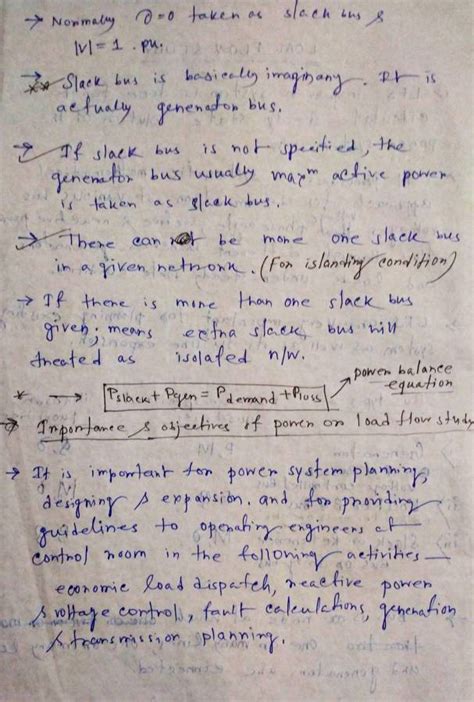 → Normally ∂=0 taken as slack bus &
|V| = 1 . pu.
→ ** Slack bus is basically imaginary. It is
actually generator bus.
→ If slack bus is not specified, the
generator bus usually maxᵐ active power
is taken as slack bus.
→ There can be more one slack bus
in a given network. (For islanding condition)
→ If there is more than one slack bus
given, means extra slack bus will
treated as isolated n/w.
power balance
equation
* --→ Pslack + Pgen = Pdemand + Ploss
→ Importance & objectives of power or load flow study
→ It is important for power system planning,
designing & expansion. and for providing
guidelines to operating engineers at
control room in the following activities—
economic load dispatch, reactive power
& voltage control, fault calculations, generation
& transmission planning.